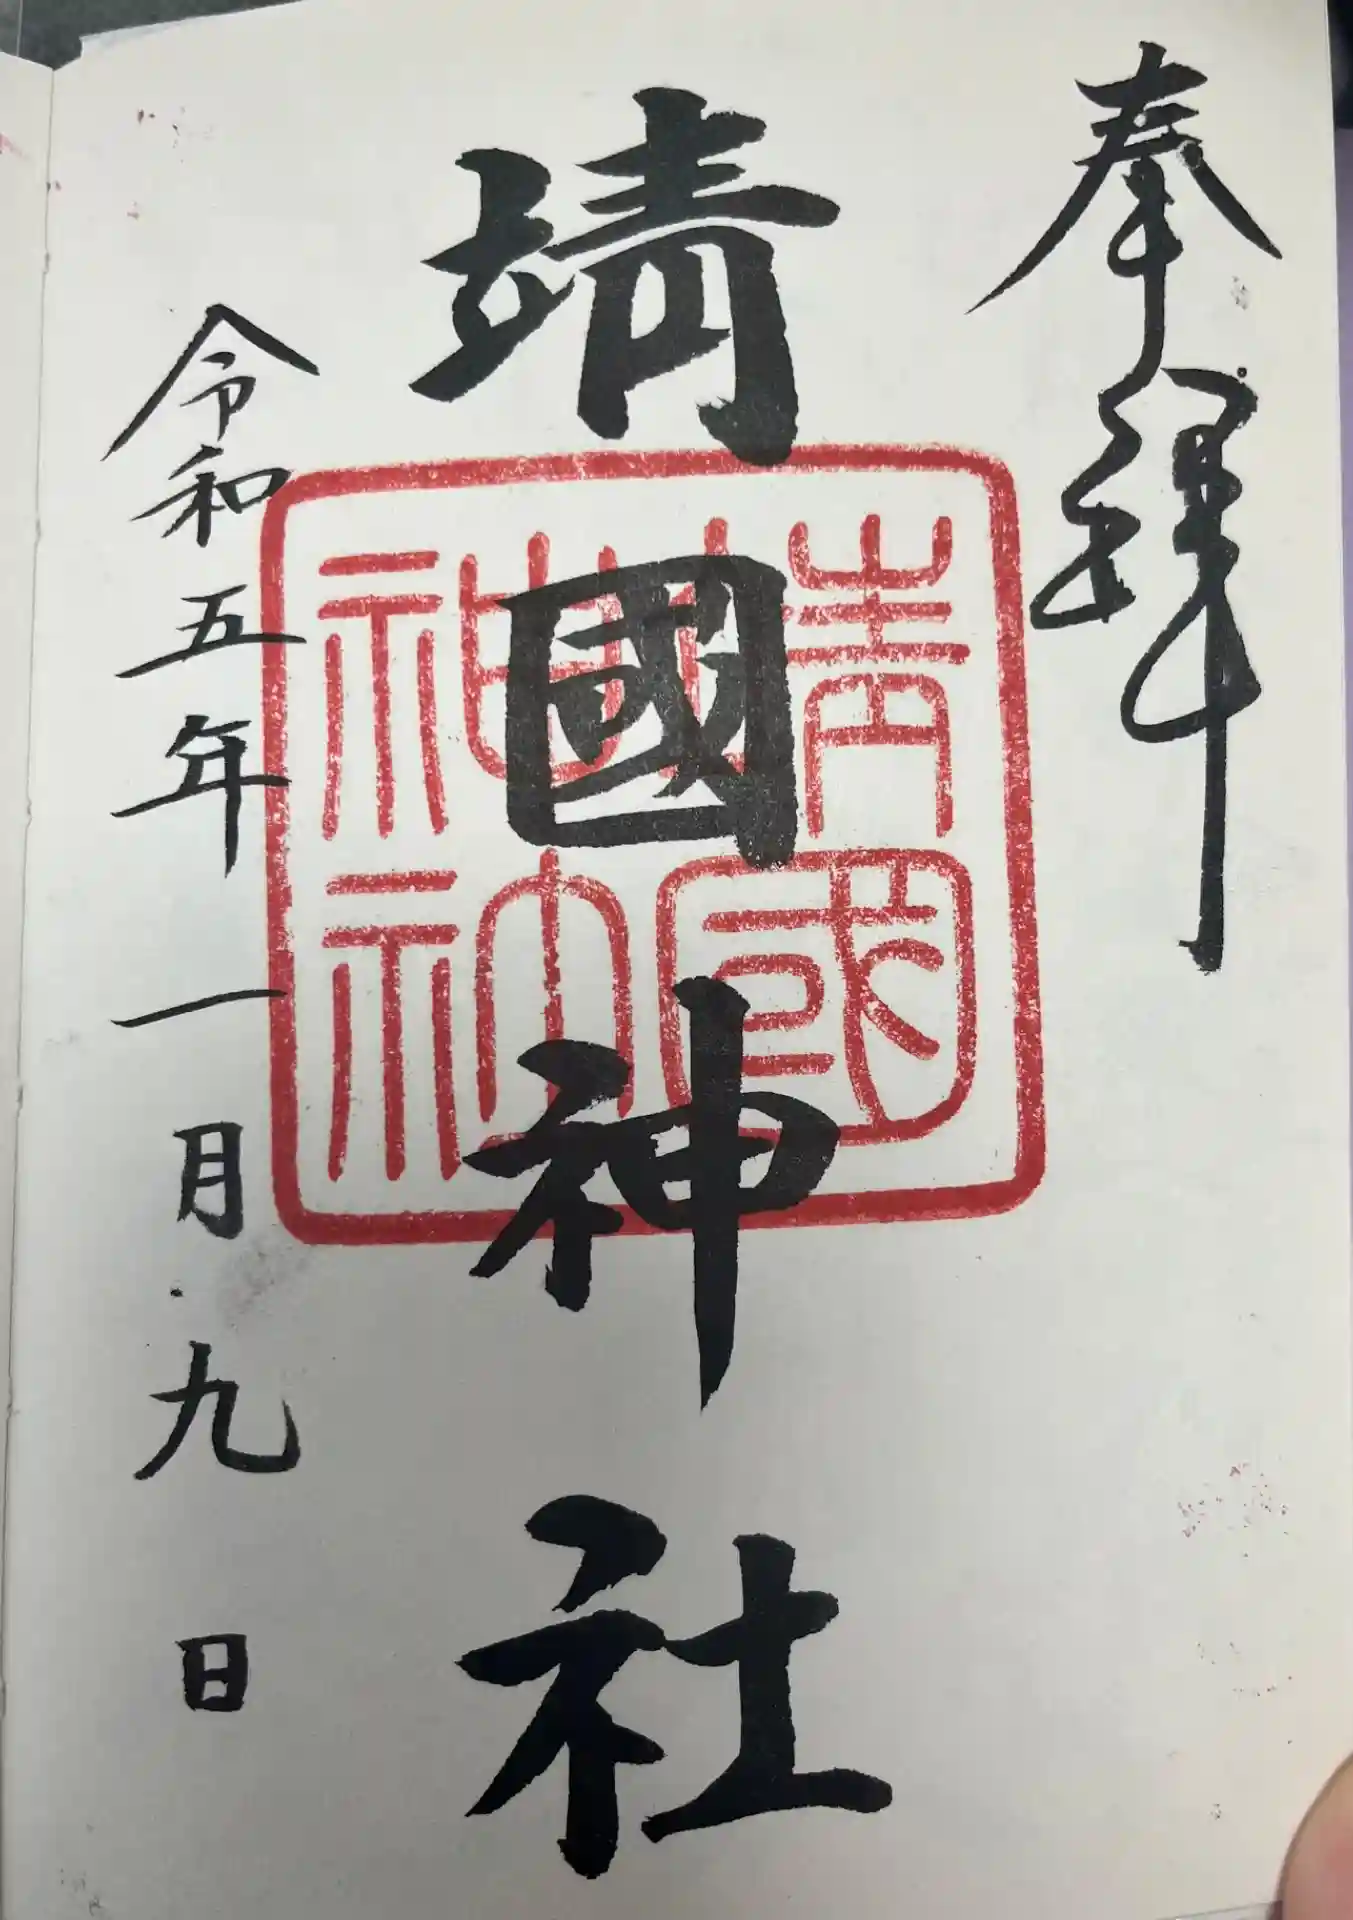 奉拜
靖國神社
靖國
神社
令和五年一月九日